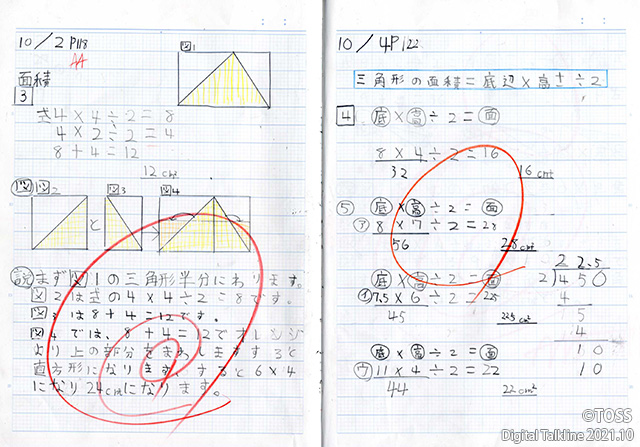 10／2 P118
AA
図1
面積
3
式4×4÷2＝8
4×2÷2＝4
8＋4＝12
12㎠
図 図2 図3 図4
と
説 まず図1の三角形半分にわります。
図2は式の4×4÷2＝8です。
図3は8＋4＝12です。
図4では、8＋4＝12でオレンジ
より上の部分をまします すると
直方形になります。すると6×4
になり24㎠になります。
10／4P122
三角形の面積＝底辺×高さ÷2
4 底×高÷2＝面
8×4÷2＝16
32
16㎠
⑤ 底×高÷2＝面
ア 8×7÷2＝28
56
28㎠
底×高÷2＝面
イ 7.5×6÷2＝
45
22.5㎠
底×高÷2＝面
ウ 11×4÷2＝22
44
22㎠
22.5
2)450
4
5
4
10
10
©TOSS
Digital Talkline 2021.10